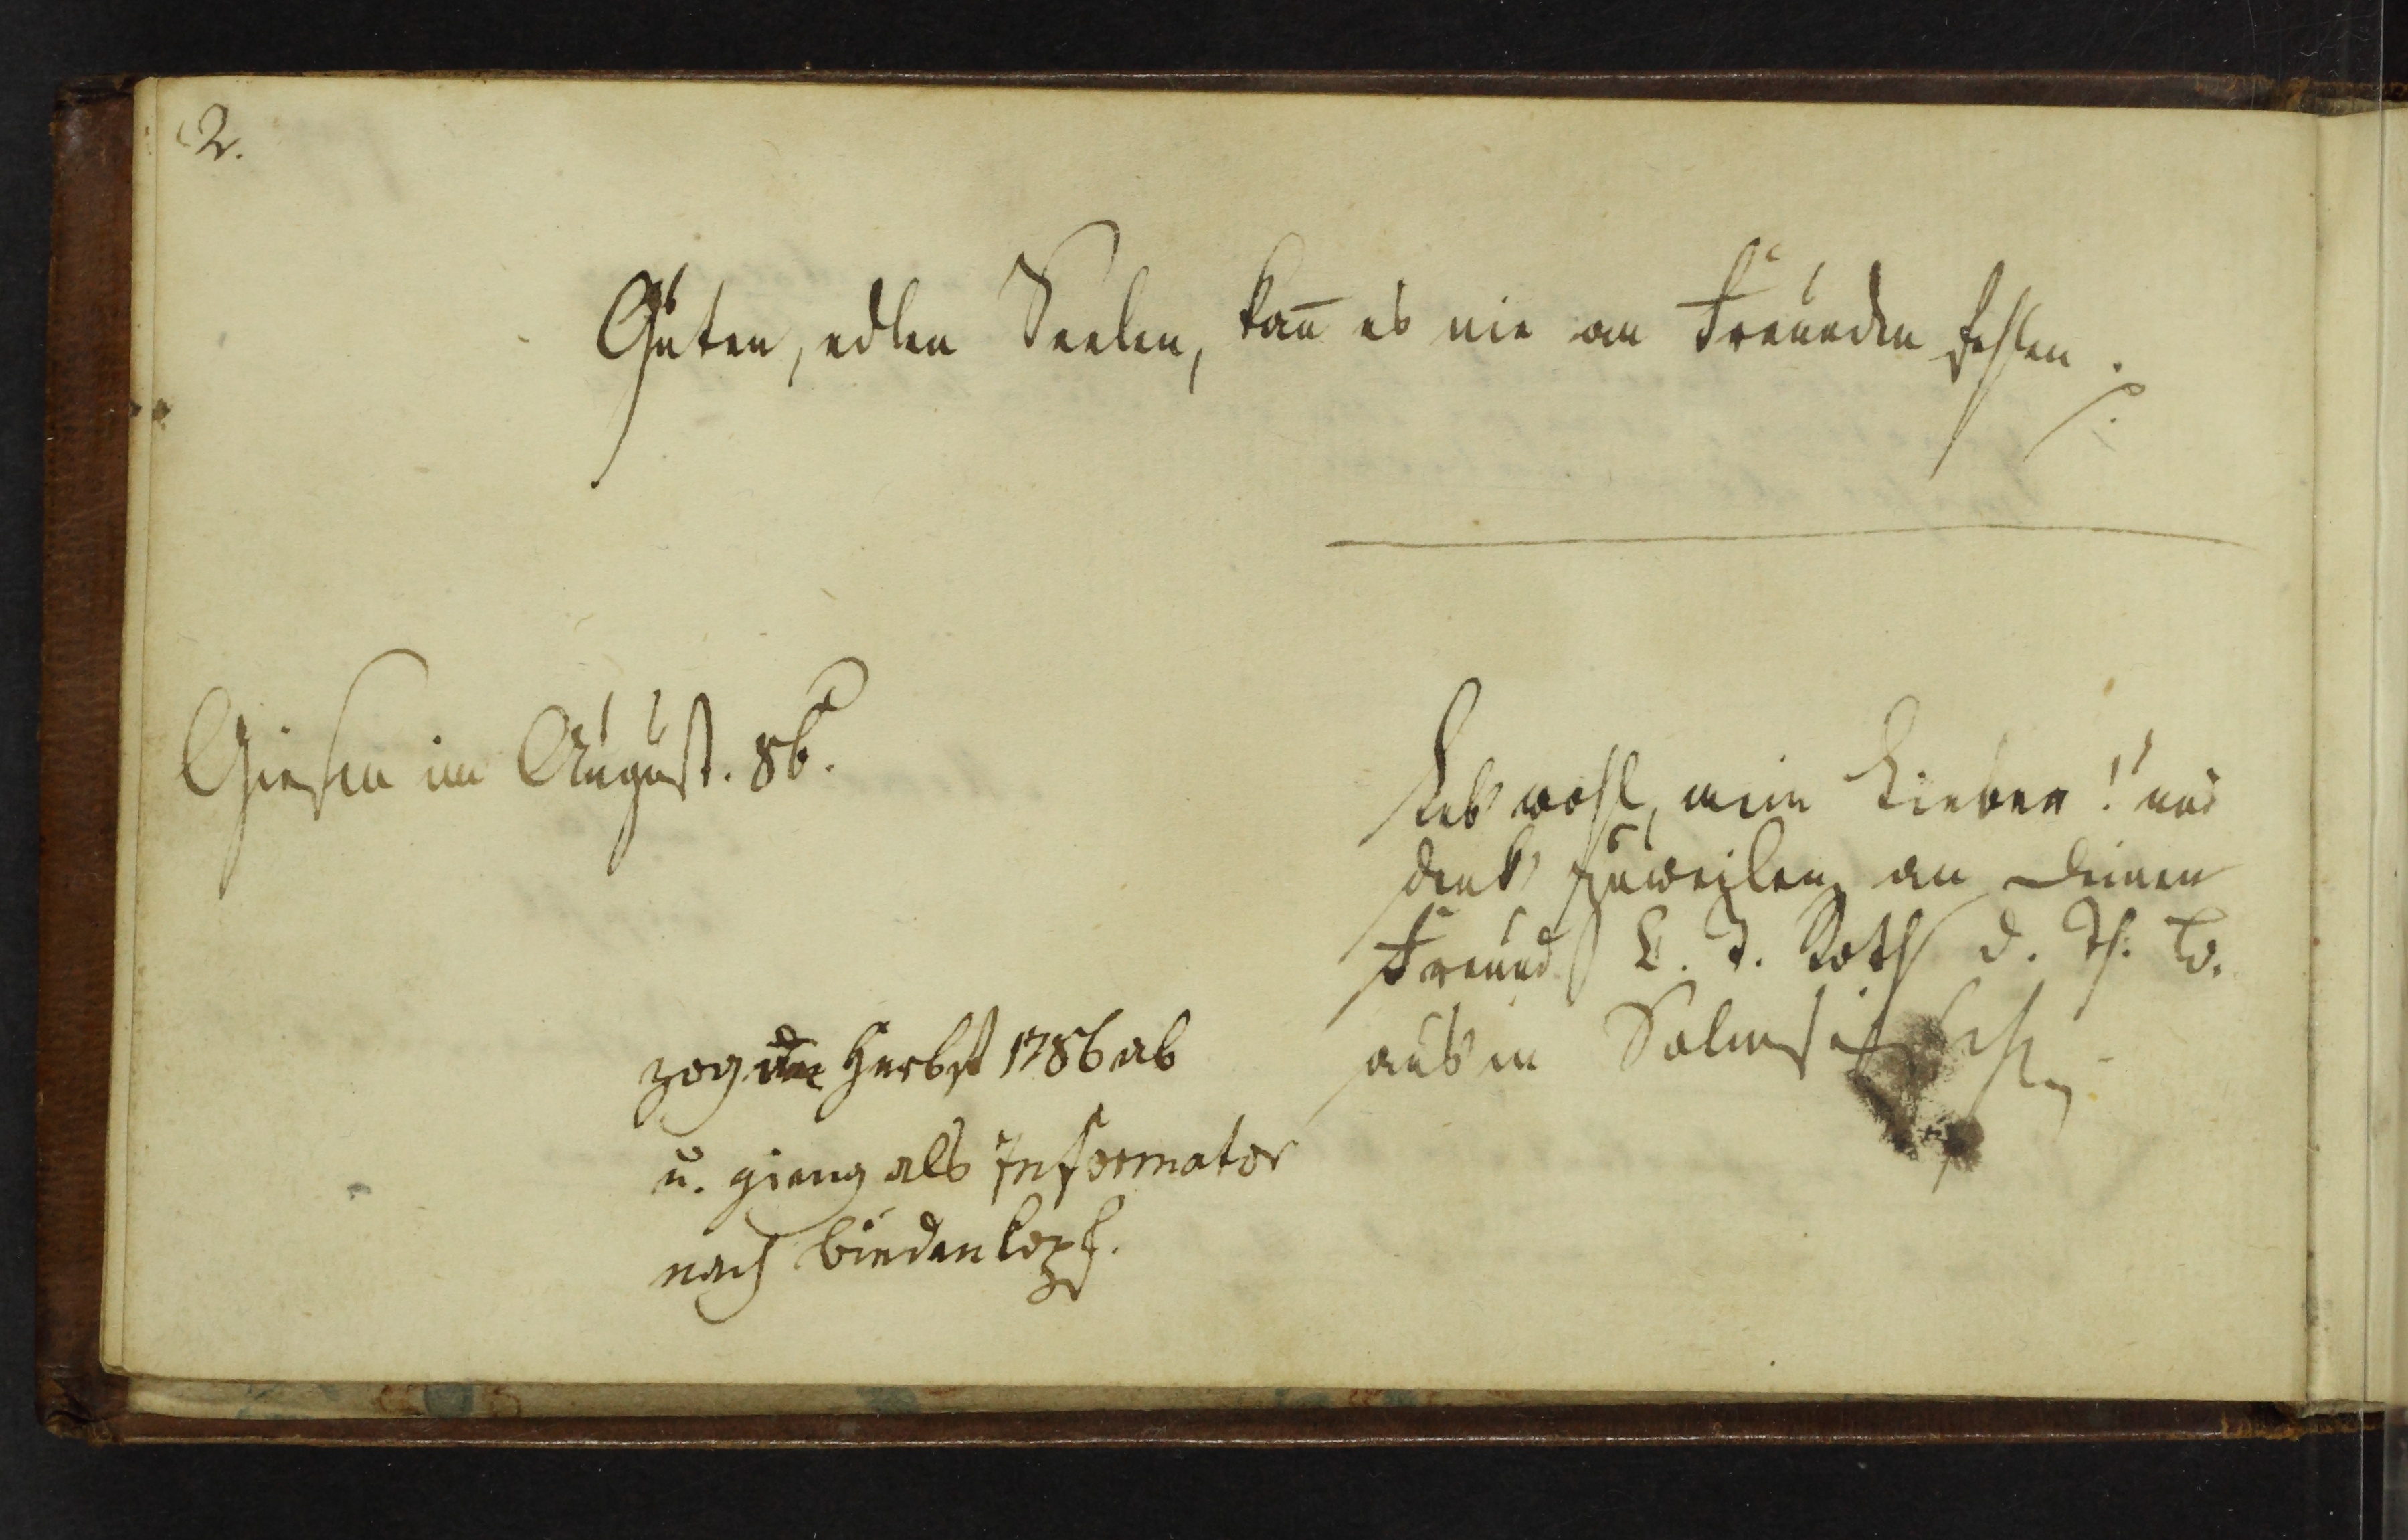 2.
Guten, edlen Seelen, kan̄ es nie an Freunden fehlen.
Giesen im August. 86.
Leb wohl, mein Lieber! und
denk zuweilen an Deinen
Freund L. J. Roth d. Th. B.
aus m Solmsischen
zog im Herbst 1786 ab
u. gieng als Informator
nach Biedenkopf.